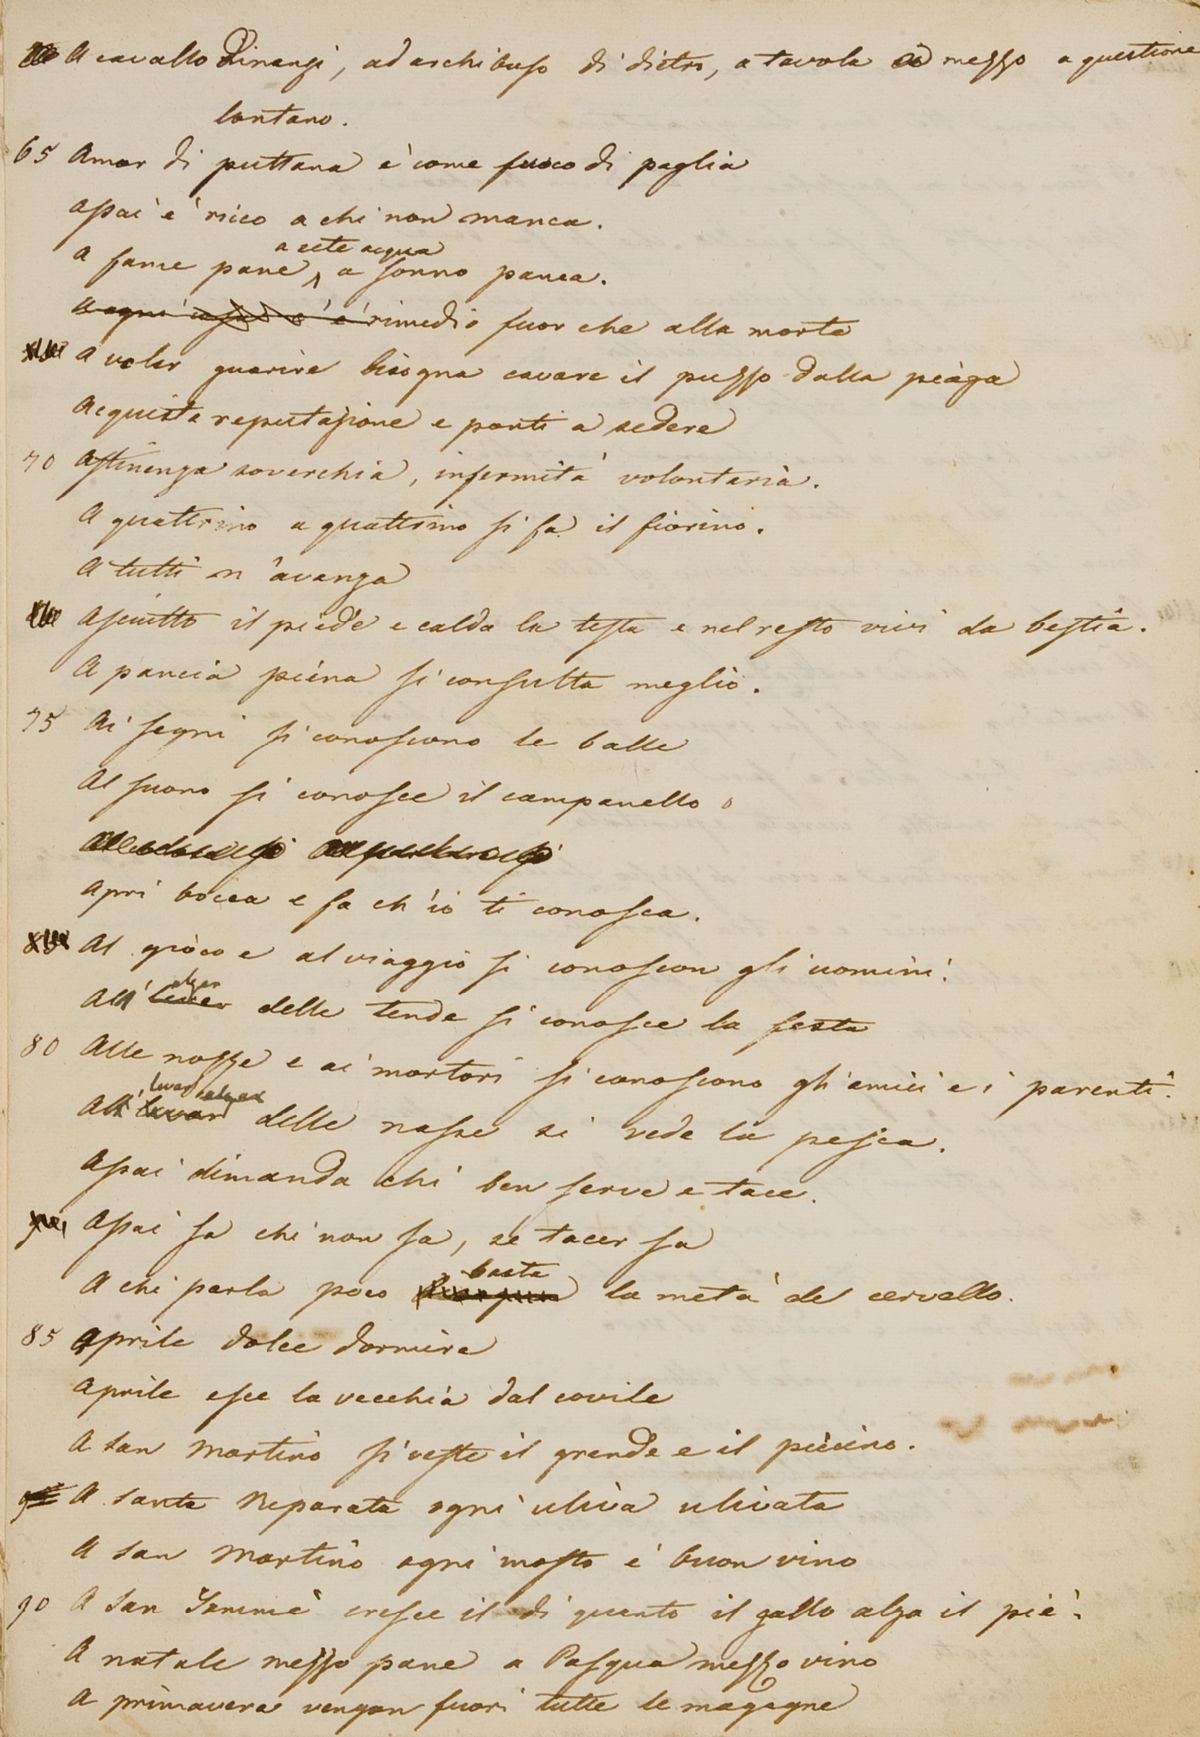 A cavallo Dinanzi, ad archibuso di dietro, a tavola in mezzo a questione
lontano.
65 Amor di puttana è come fuoco di paglia
Assai è ricco a chi non manca.
a sete acqua
A fame pane, a sonno panca.
A ogni cosa c'è rimedio fuor che alla morte
A voler guarire bisogna cavare il puzzo dalla piaga
Acquista reputazione e ponti a sedere
70 Astinenza soverchia, infermità volontaria.
A quattrino a quattrino si fa il fiorino.
A tutti n'avanza
Asciutto il piede e calda la testa e nel resto vivi da bestia.
A pancia piena si consulta meglio.
75 Ai segni si conoscono le balle
Al suono si conosce il campanello
Apri bocca e fa ch'io ti conosca.
Al gioco e al viaggio si conoscon gli uomini.
alzar
All' levar delle tende si conosce la festa
80 Alle nozze e ai mortori si conoscono gli amici e i parenti.
levar alzar
All' levar delle nasse si vede la pesca.
Assai dimanda chi ben serve e tace.
Assai sa chi non sa, se tacer sa
basta
A chi parla poco bisogna la metà del cervello.
85 Aprile dolce dormire
Aprile esce la vecchia dal covile
A San Martino si veste il grande e il piccino.
A Santa Reparata ogni uliva ulivata
A San Martino ogni mosto è buon vino
90 A San Tommè cresce il dì quanto il gallo alza il piè.
A natale mezzo pane a Pasqua mezzo vino
A primavera vengon fuori tutte le magagne